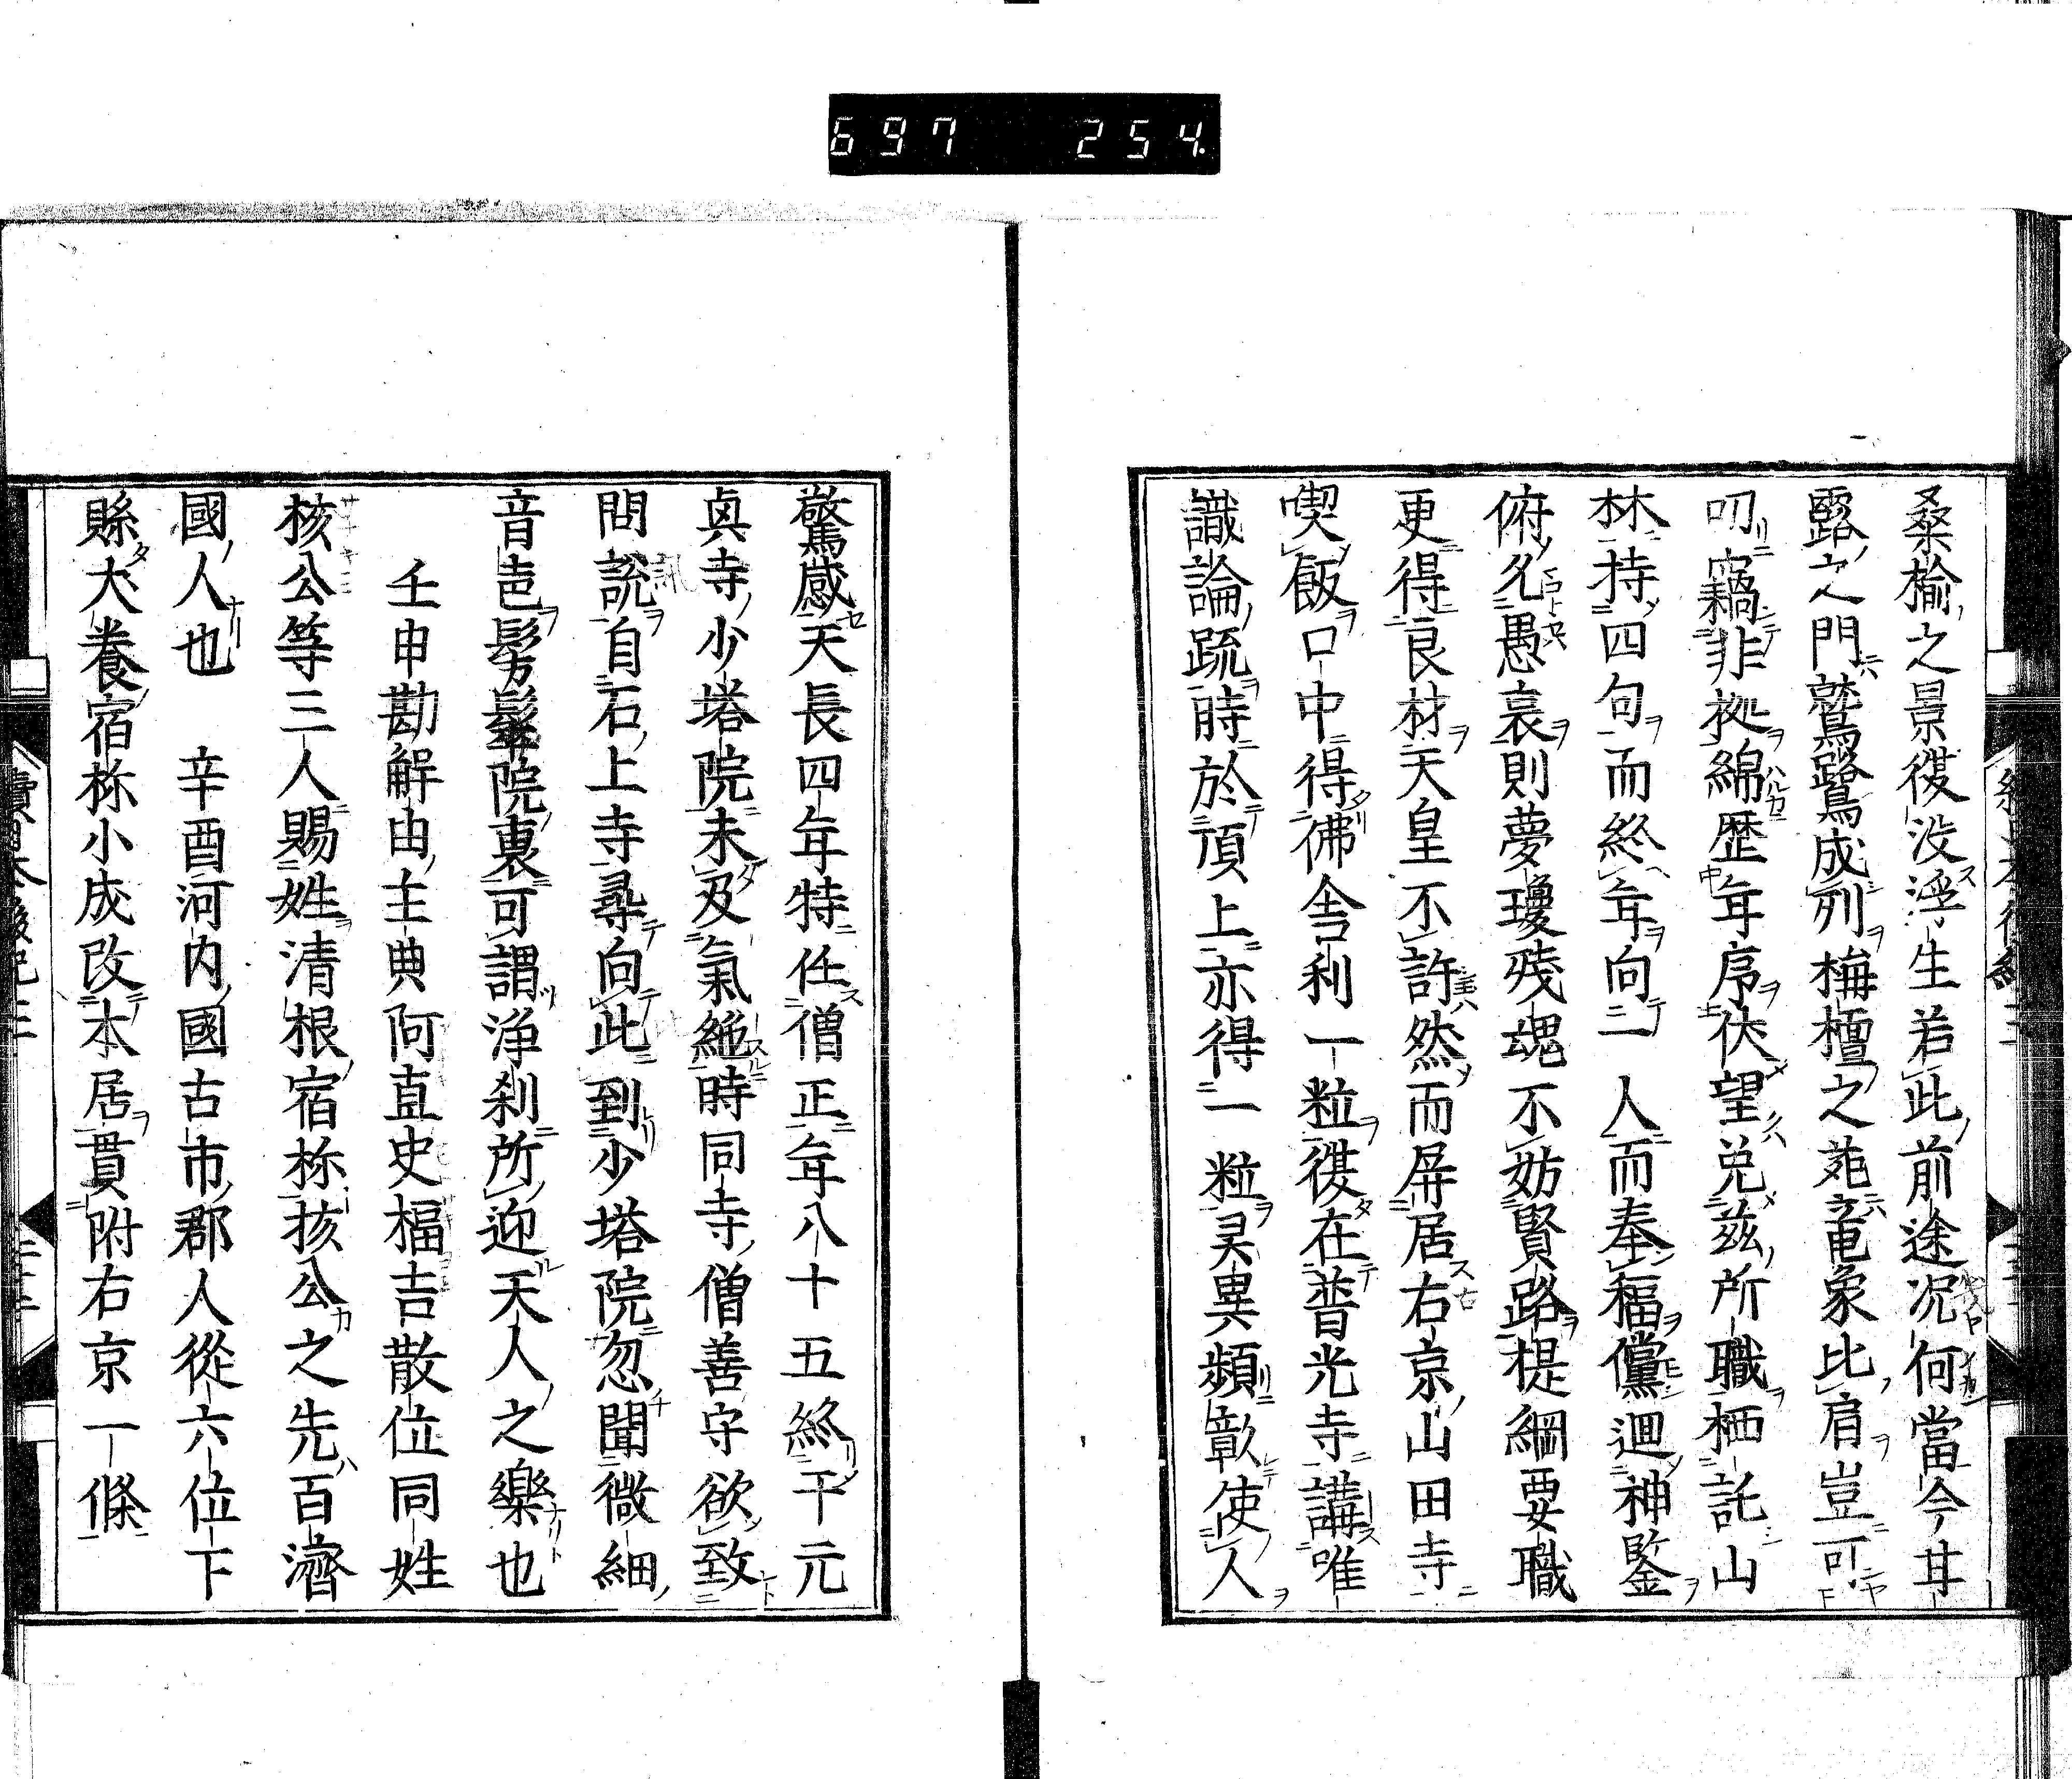 697 254
桑楡之景復没浮生若此前途況何當今丼
露之門鷲鷺成列梅檀之苑竜象比肩豈可
叨竊非據綿歴年序伏望免茲所職栖託山
林持四句而終年向一人而奉福儻迴神鑒
俯允愚哀則夢瓊残魂不妨賢路提綱要職
更得良材天皇不許然而屏居右京山田寺
喫飯口中得佛舎利一粒復在普光寺講唯
識論疏時於頂上亦得一粒昊異頻彰使人
驚感天長四年特任僧正年八十五終于元
真寺少塔院未及氣絶時同寺僧善守欲致
問説自石上寺尋向此到少塔院忽聞微細
音邑髣髴院裏可謂浄刹所迎天人之樂也
壬申勘解由主典阿直史福吉散位同姓
核公等三人賜姓清根宿祢核公之先百濟
國人也 辛酉河内國古市郡人從六位下
縣犬養宿祢小成改本居貫附右京一條
續日本後紀三